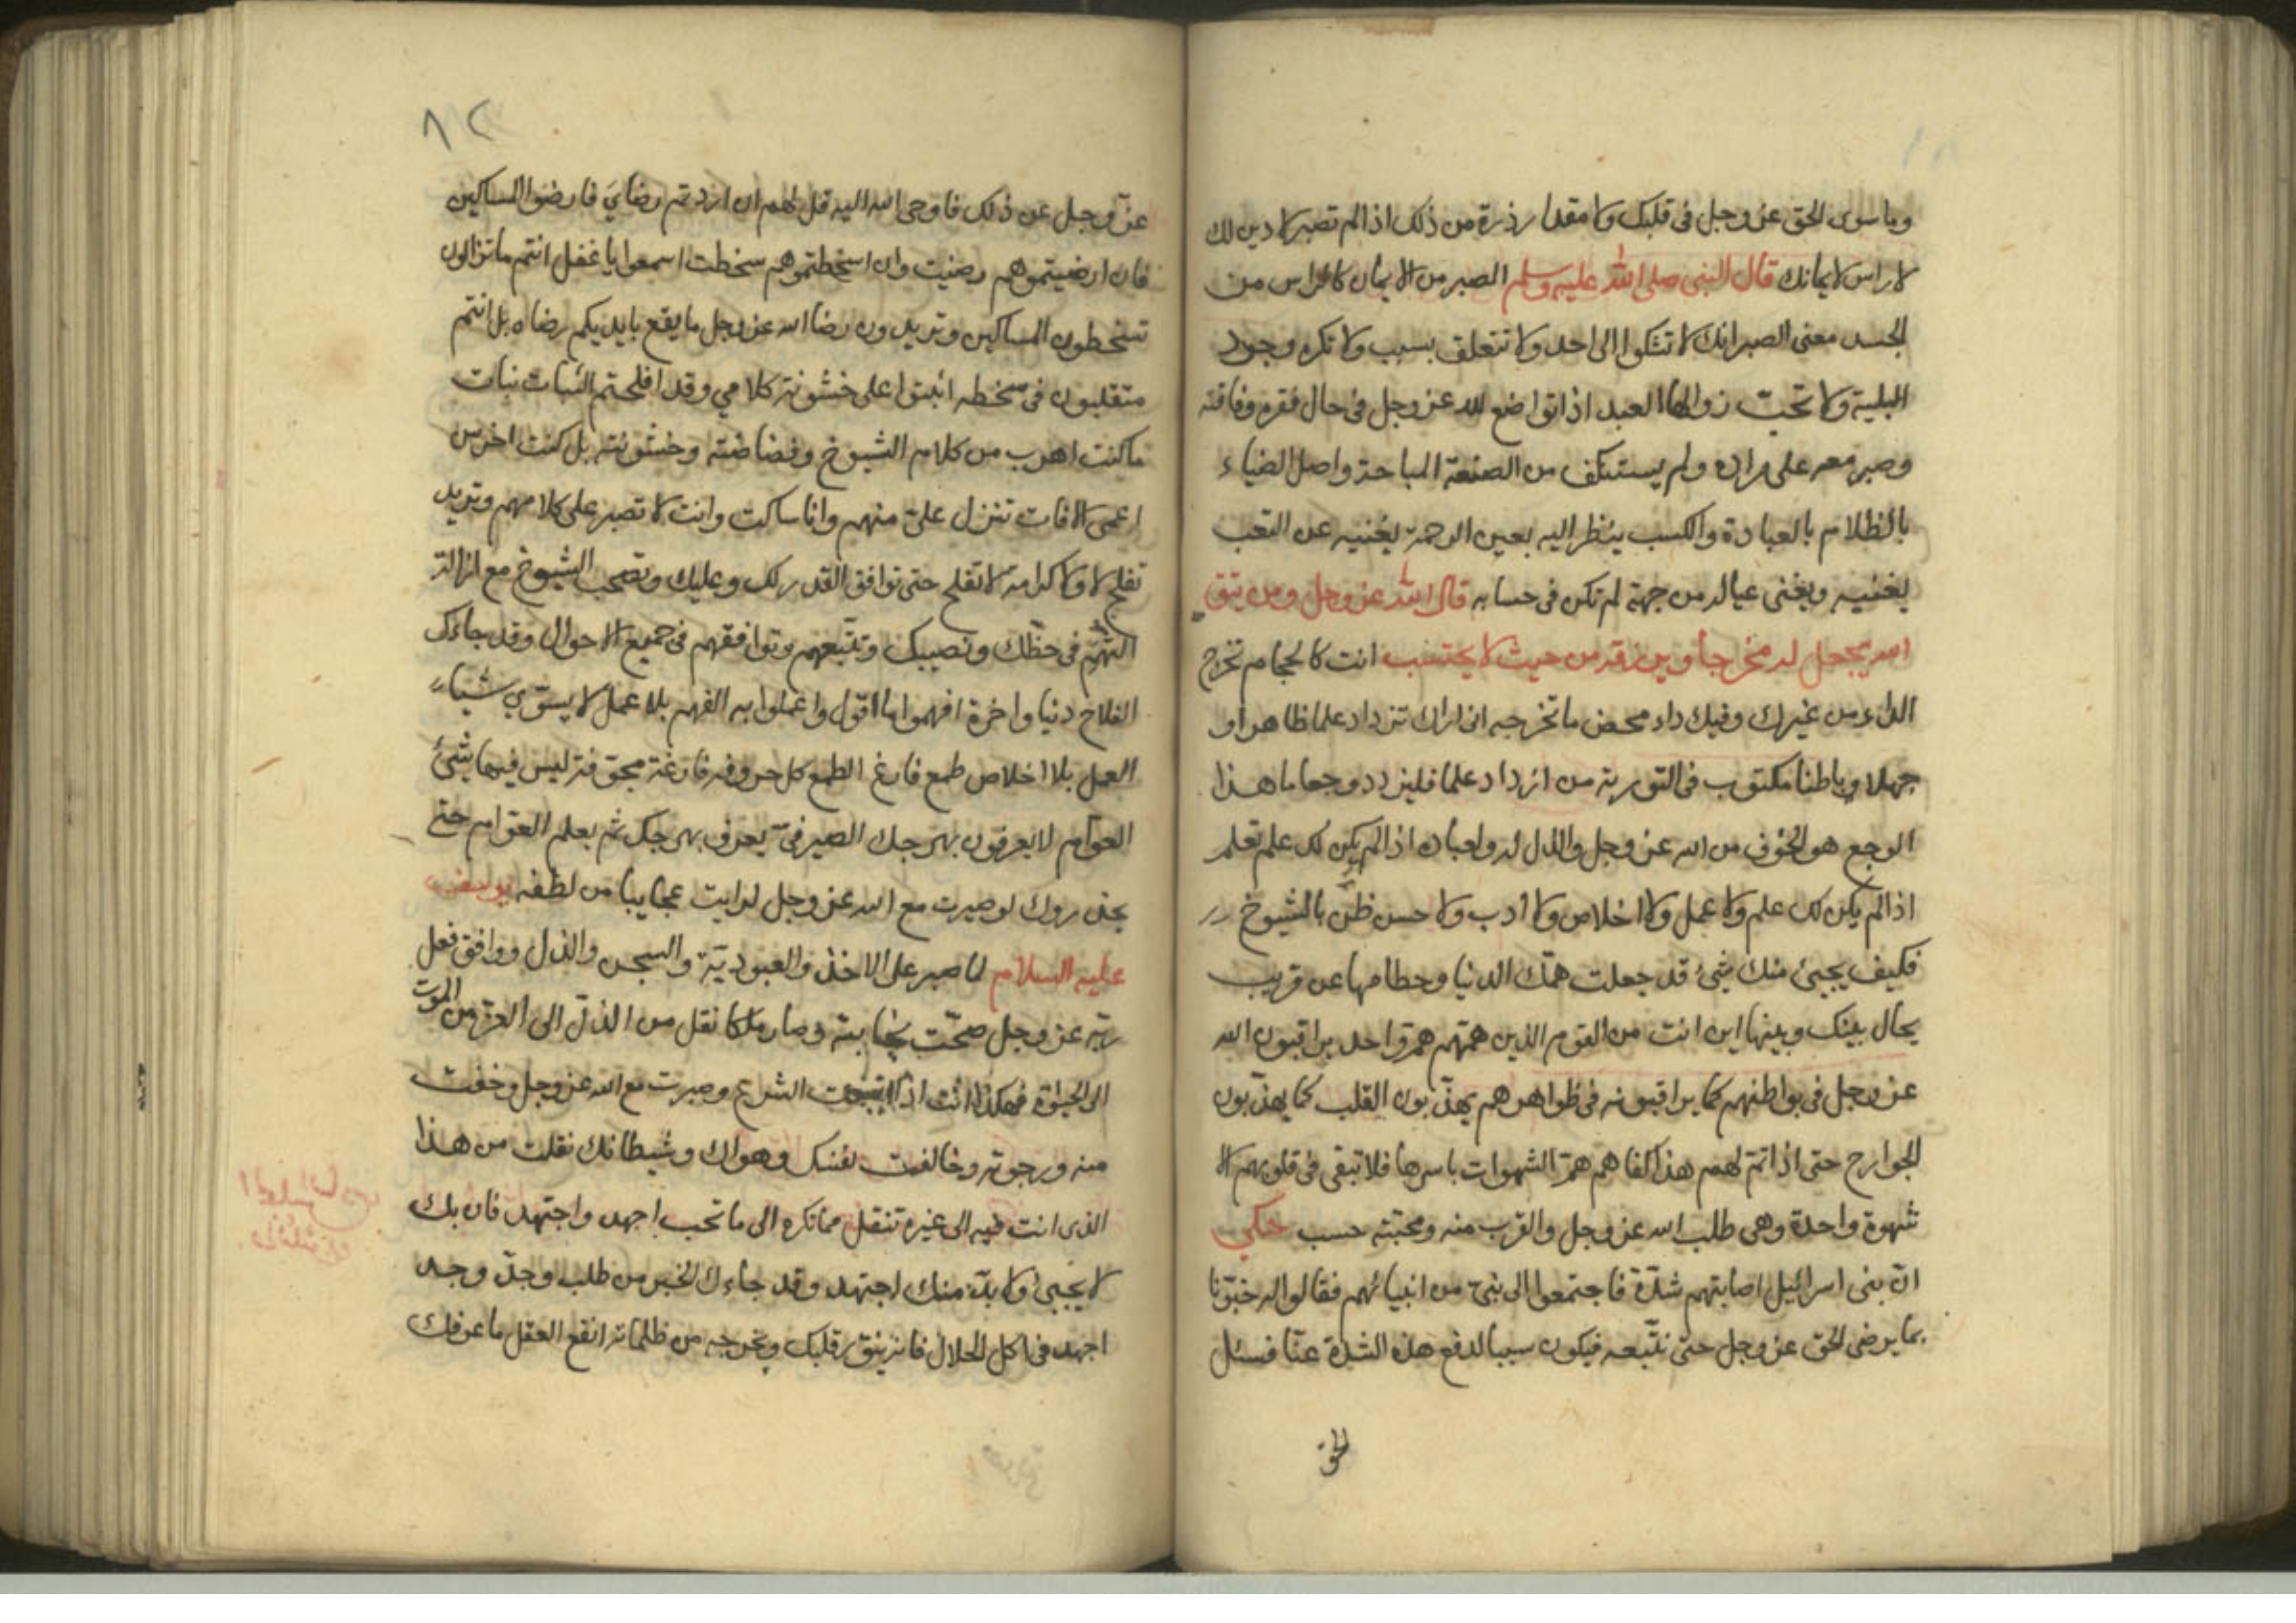 وما سوى الحق عز وجل فى قلبك ولا مقدار ذرة من ذلك اذا لم تصبر لا دين لك
لا راس لايمانك قال النبى صلى الله عليه وسلم الصبر من الايمان كالراس من
الجسد معنى الصبر انك لا تشكوا الى احد ولا تتعلق بسبب ولا تكره وجود
البلية ولا تحب زوالها العبد اذا تواضع لله عز وجل فى حال فقره وفاقته
وصبر معه على مراده ولم يستنكف من الصنعة المباحة واصل الضياء
بالظلام بالعبادة والكسب ينظر اليه بعين الرحمة يغنيه عن التعب
يغنيه ويغنى عياله من جهة لم تكن فى حسابه قال الله عز وجل ومن يتق
الله يجعل له مخرجا ويرزقه من حيث لا يحتسب انت كالحجام تخرج
الداء من غيرك وفيك داء محض ما تخرجه انى اراك تزداد علما ظاهرا و
جهلا وباطنا مكتوب فى التورية من ازداد علما فليزدد وجعا ما هذا
الوجع هو الخوف من الله عز وجل والذل له ولعباده اذا لم يكن لك علم تعلم
اذا لم يكن لك علم ولا عمل ولا اخلاص ولا أدب ولا حسن ظن بالشيوخ
فكيف يجيئ منك شيئ قد جعلت همك الدنيا وحطامها عن قريب
يحال بينك وبينها اين انت من القوم الذين همتهم هم واحد يراقبون الله
عز وجل فى بواطنهم كما يراقبونه فى ظواهرهم يهذبون القلب كما يهذبون
الجوارح حتى اذا تم لهم هذا كفاهم هم الشهوات باسرها فلا تبقى فى قلوبهم الا
شهوة واحدة وهى طلب الله عز وجل والقرب منه ومحبته حسب حكي
ان بنى اسرائيل اصابتهم شدة فاجتمعوا الى نبى من انبيائهم فقالوا له خبرنا
بما يرضى الحق عز وجل حتى نتبعه فيكون سببا لدفع هذه الشدة عنا فسئل
الحق
٨٢
عز وجل عن ذلك فاوحى الله اليه قل لهم ان اردتم رضاي فارضوا المساكين
فان ارضيتموهم رضيت وان اسخطتموهم سخطت اسمعوا يا غفل انتم ما تزالون
تسخطون المساكين وتريدون رضا الله عز وجل ما يقع بايديكم رضاه بل انتم
متقلبون فى سخطه اثبتوا على خشونة كلامي وقد افلحتم الثبات نبات
ما كنت اهرب من كلام الشيوخ وفضاضته وخشونته بل كنت اخرس
اعمى الافات تنزل علىّ منهم وانا ساكت وانت لا تصبر على كلامهم وتريد
تفلح لا ولا كرامة لا تفلح حتى توافق القدر لك وعليك وتصحب الشيوخ مع ازالة
التهم فى حظك ونصيبك وتتبعهم وتوافقهم فى جميع الاحوال وقد جاءك
الفلاح دنيا واخرة افهموا ما اقول واعملوا به الفهم بلا عمل لا يسوي شياء
العمل بلا اخلاص طمع فارغ الطمع كل حروفه فارغة مجوفة ليس فيها شئ
العوام لا يعرفون بهرجك الصيرفى يعرف بهرجك ثم يعلم العوام حتى
يحذروك لو صبرت مع الله عز وجل لرايت عجايبا من لطفه يوسف
عليه السلام لما صبر على الاخذ والعبودية والسجن والذل ووافق فعل
ربه عز وجل صحت نجابته وصار ملكا نقل من الذل الى العز من الموت
الى الحيوة فهكذا انت اذا اتبعت الشرع وصبرت مع الله عز وجل وخفت
منه ورجوته وخالفت نفسك وهواك وشيطانك نقلت من هذا
الذى انت فيه الى غيره تنقل مما تكره الى ما تحب اجهد واجتهد فان بك
لا يجيئ ولا بد منك اجتهد وقد جاءك الخير من طلب وجد وجد
اجهد فى اكل الحلال فانه ينور قلبك ويخرجه من ظلماته انفع العقل ما عرفك